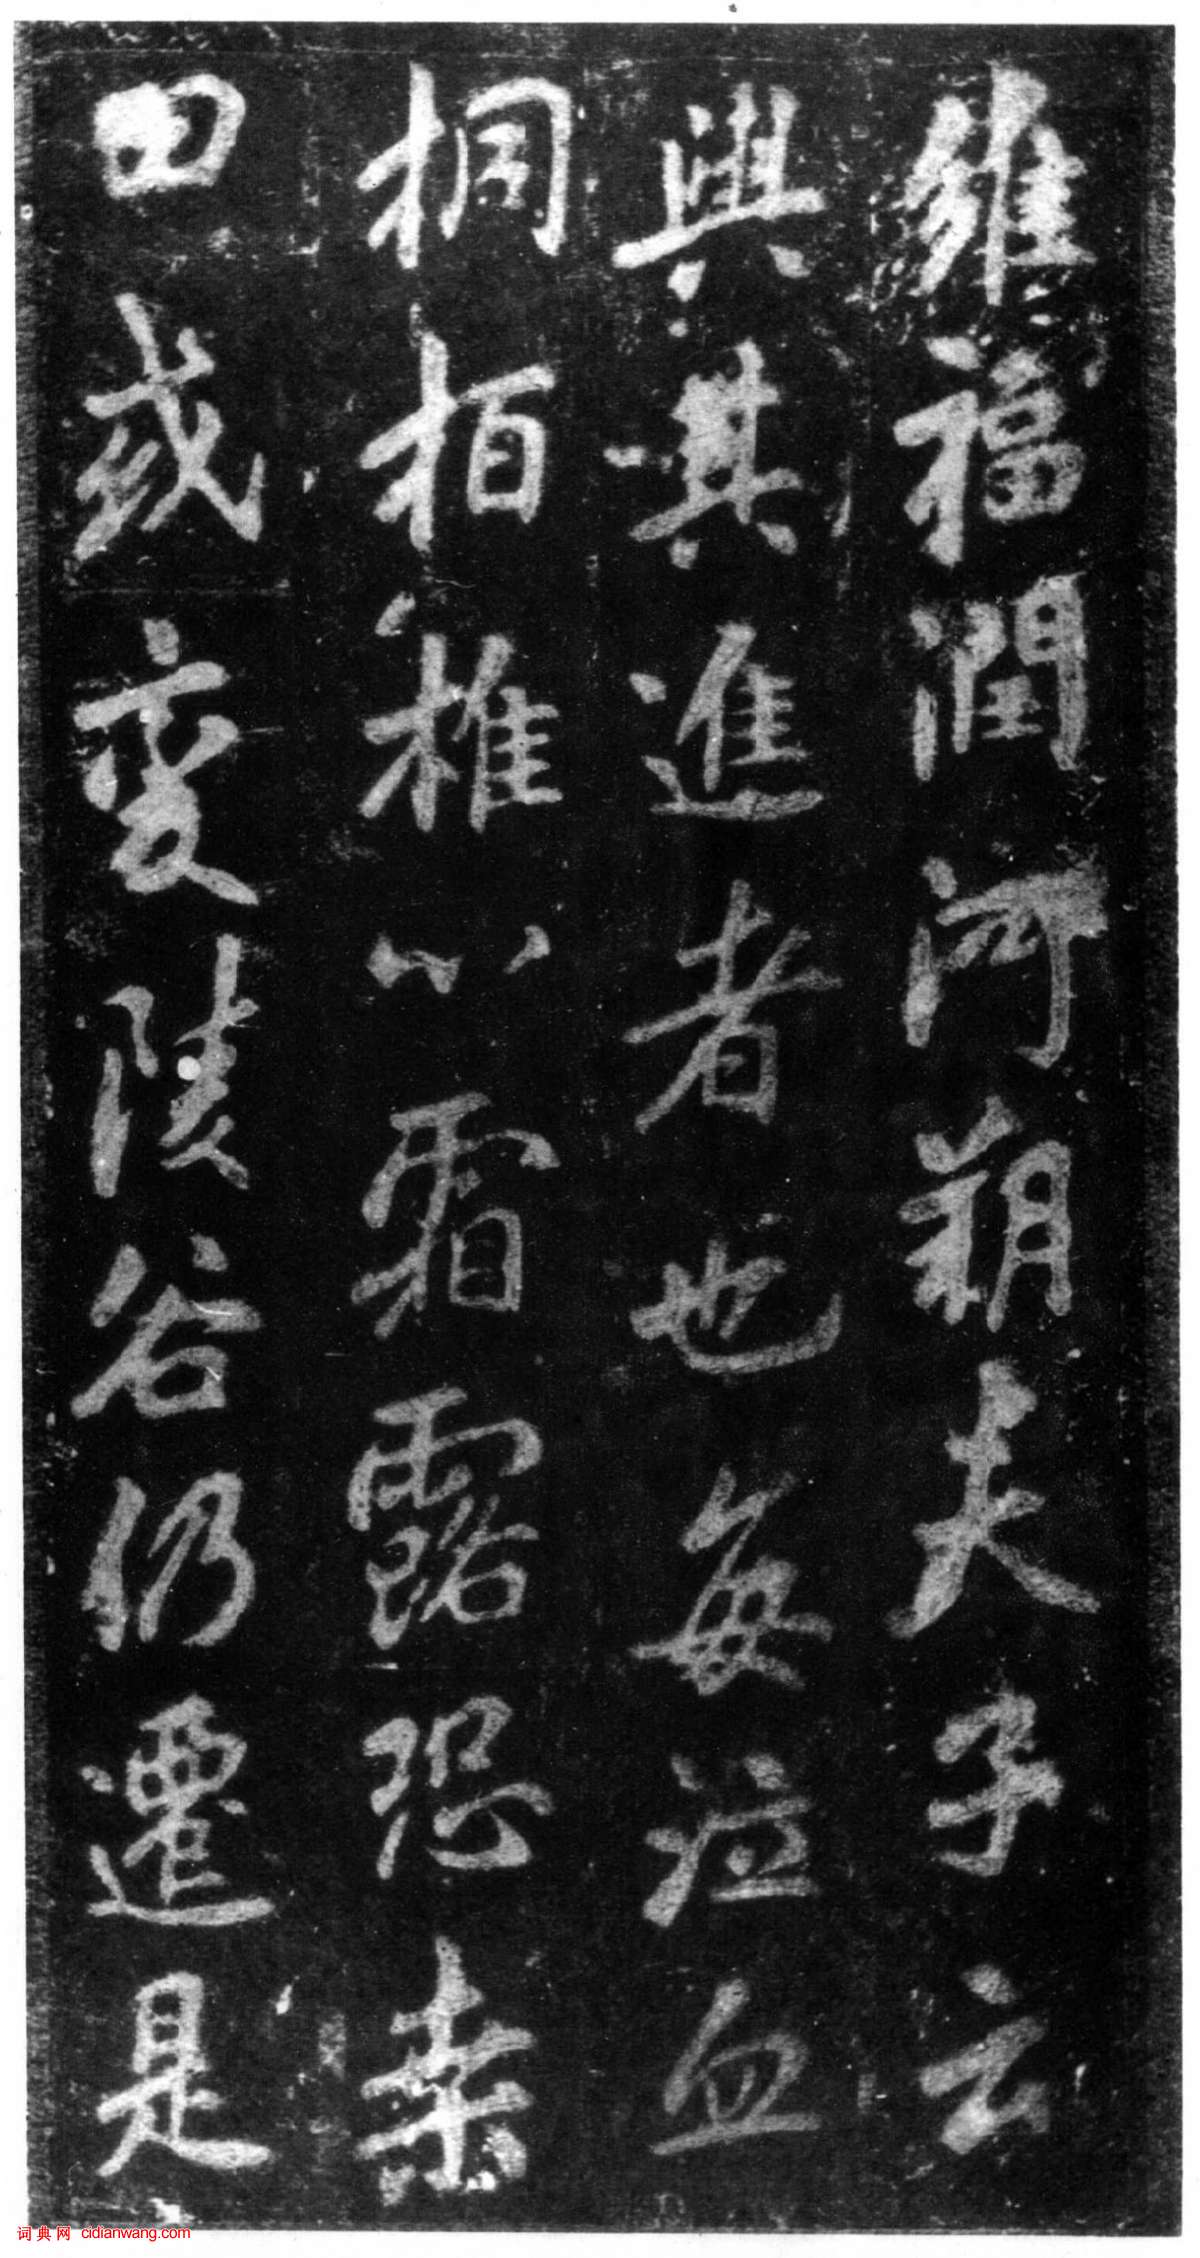 維福潤河朔夫子云
與其進者也每泣血
桐栢椎心霜露恐桒
田或變陵谷仍遷是
词典网 cidianwang.com